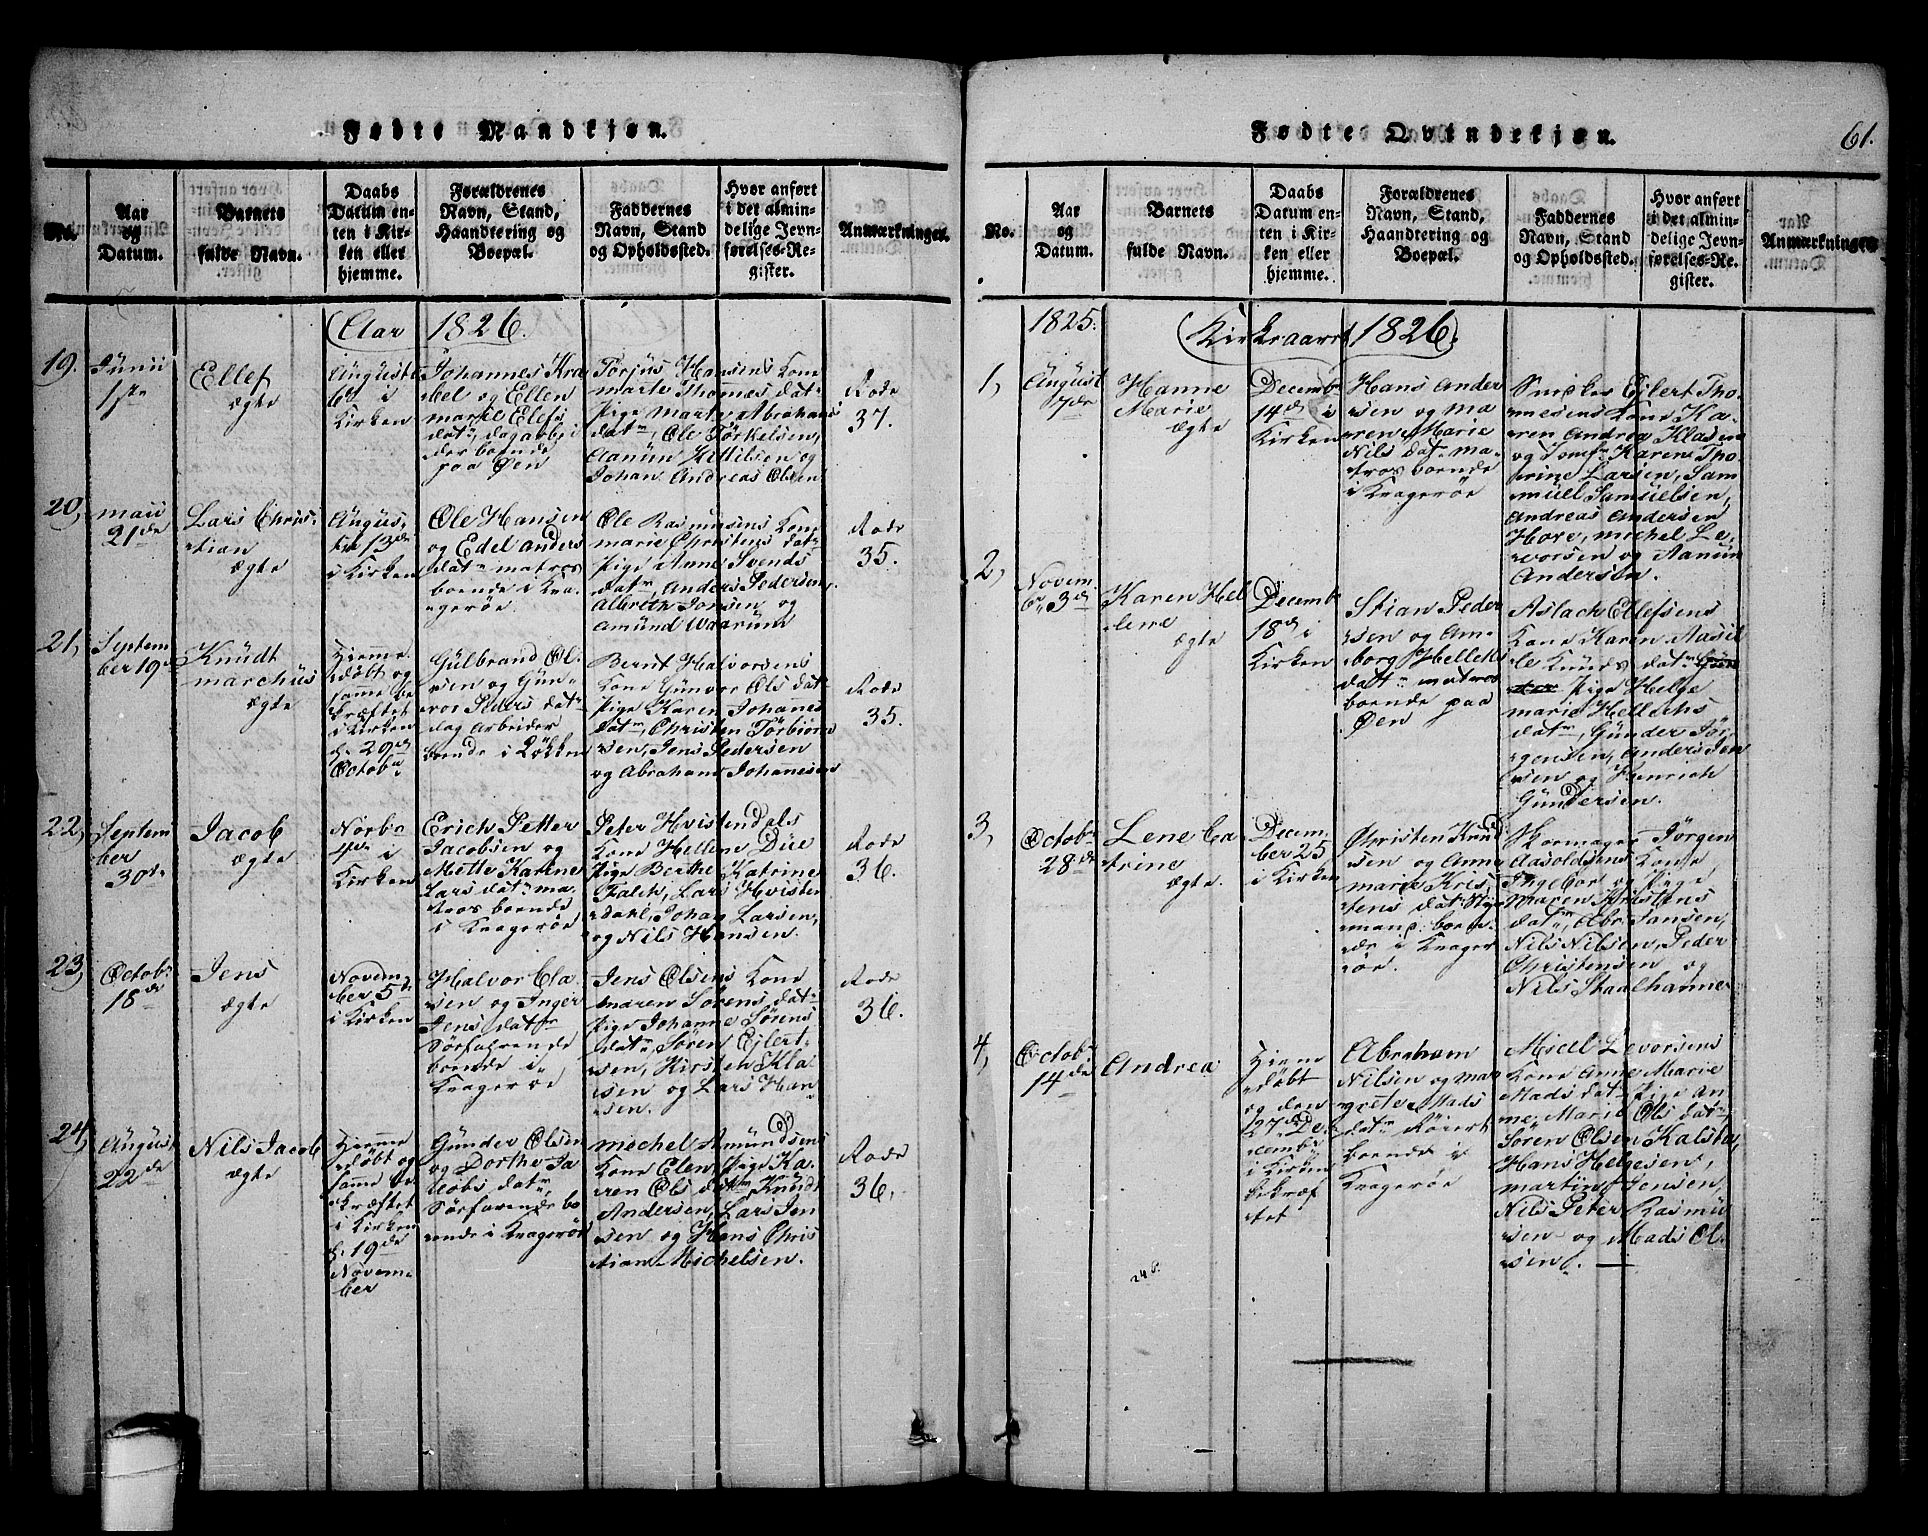 Fødte Mandkjøn.
No.
Aar
og
Datum.
Barnets
fulde Navn.
Daabs
Datum en-
ten i Kir-
ken eller
hjemme.
Forældrenes
Navn, Stand,
Haandtering og
Boepæl.
Faddernes
Navn, Stand
og Opholdssted.
Hvor anført
i det almin-
delige Jevn-
førelses-Re-
gister.
Anmærkninger.
Aar 1826.
19.
Junii
1ste
Ellef
ægte
Auguste
6te i
Kirken
Johannes Kra-
bel og Ellen
marie Elefs
dattr dagarbei
der boende
paa Øen
Torjus Hansens Kone
marte Thommes dat-
Pige Marte Abrahams
datr, Ole Törkelsen,
Aanün Kittilsen og
Johan Andreas Olsen
Rode
37.
20,
maii
21de
Lars Chris-
tian
ægte
Augus-
te 13de
i Kirken
Ole Hansen
og Edel anders
datr matros
boende i Kra-
gerøe
Ole Rasmusens Kone
marie Christens dat-
Pige Anne Svends
datr, Anders Pedersen
Albrith Jonsen og
Amünd Waarum
Rode
35.
21,
Septem-
ber 19de
Knüdt
marchüs
ægte
Hjemme
døbt og
samme be-
kræftet
i Kirken
d. 29de
Octobr
Gülbrand Ol-
sen og Gün-
vor Peders dat-
dag Arbeider
boende i Lökken
Bernt Halvorsens
Kone Günvor Ols dat-
Pige Karen Johanes
datr, Christen Törbiörn
sen, Jens Pedersen
og Abraham Johanesen
Rode
35.
22,
Septem
ber
30te
Jacob
ægte
Norbr
1de i
Kirken
Erich Petter
Jacobsen og
Mette Karine
Lars datr ma-
tros boende
i Kragerøe
Peter Hvistendals
Kone Hellene Düe
Pige Berthe Katrine
Falch, Lars Hvisten
dahl, Johan Larsen,
og Nils Hansen.
Rode
36.
23,
Octobr
18de
Jens
ægte
Novem-
ber 5de
i Kirken
Halvor Cla-
sen og Inger
Jens datr
Sörfarende
boende i
Kragerøe
Jens Olsens Kone
maren Sörens dat-
Pige Johanne Sörens
datr Sören Ejlert-
sen, Kirsten Kla-
sen og Lars Han-
sen.
Rode
36.
24,
August
22de
Nils Jacob
ægte
Hjemme
døbt og
samme be
kræftet
i Kirken
d. 19de
Novem-
ber
Günder Olsen
og Dorthe Ja
cobs datr,
Sörfarende bo
ende i Kragerøe
mechel Amündsens
Kone Elen, Pige Ka-
ren Ols datr Knüdt
Andersen, Lars Jen
sen og Hans Chris
tian Michelsen.
Rode
36,
Fødte Qvindekjøn.
61.
No.
Aar
og
Datum.
Barnets
fulde Navn.
Daabs
Datum en-
ten i Kir-
ken eller
hjemme.
Forældrenes
Navn, Stand,
Haandtering og
Boepæl.
Faddernes
Navn, Stand
og Opholdssted.
Hvor anført
i det almin-
delige Jevn-
førelses-Re-
gister.
Anmærkninger
1825.
Kirkeaaret 1826.
1,
August
7de
Hanne
Marie
ægte
Decembr
14de i
Kirken
Hans Ander
sen og ma
ren Marie
Nils datr ma-
tros boende
i Kragerøe
Snicker Ejlert Tho-
mesens Kone Ka-
ren Andrea Klasen
og Jomfr Karen Tho-
rine Larsen, Sam-
müel Samüelsen,
Andreas Andersen
Hove, michel Le-
vorsen og Aanün
Andersen.
2,
Novem-
br 3de
Karen Hel
lene
ægte
Decembr
18de i
Kirken
Stian Peder
sen og An-
borg Hellechs
datr matros
boende paa
Øen
Aslach Ellefsens
Kone Karen Aasil
le Knuds datr
Pige Helge
marie Hellechs
datr, Günder Jör-
gensen, Anders Jen
sen og Henrich
Gündersen.
3,
Octobr
28de
Lene Ca
trine
ægte.
Decem-
ber 25
i Kirken
Christen Knud
sen og Anne
marie Kris
tens datr Styr
mand boen-
de i Krager
øe.
Skormager Jörgen
Aasoldsens Kone
Ingebor og Pige
Maren Kristens
datr, Abr Jansen,
Nils Nilsen, Peder
Christensen og
Nils Staalhanne
4,
Octobr
14de
Andrea
Hjeme
døbt
og den
27de De-
cembr
i Kirken
bekræf
tet
Abraham
Nilsen og mar
grete Mads
datr Röiert
boende i
Kragerøe
Micel Levorsens
Kone Anne Marie
Mads dat- Pige An
ne Marie Ols datr,
Sören Olsen Kalstad,
Hans Helgesen,
martin Jensen,
Nils Peter Rasmü
sen og Mads Ol-
sen.
24 6.